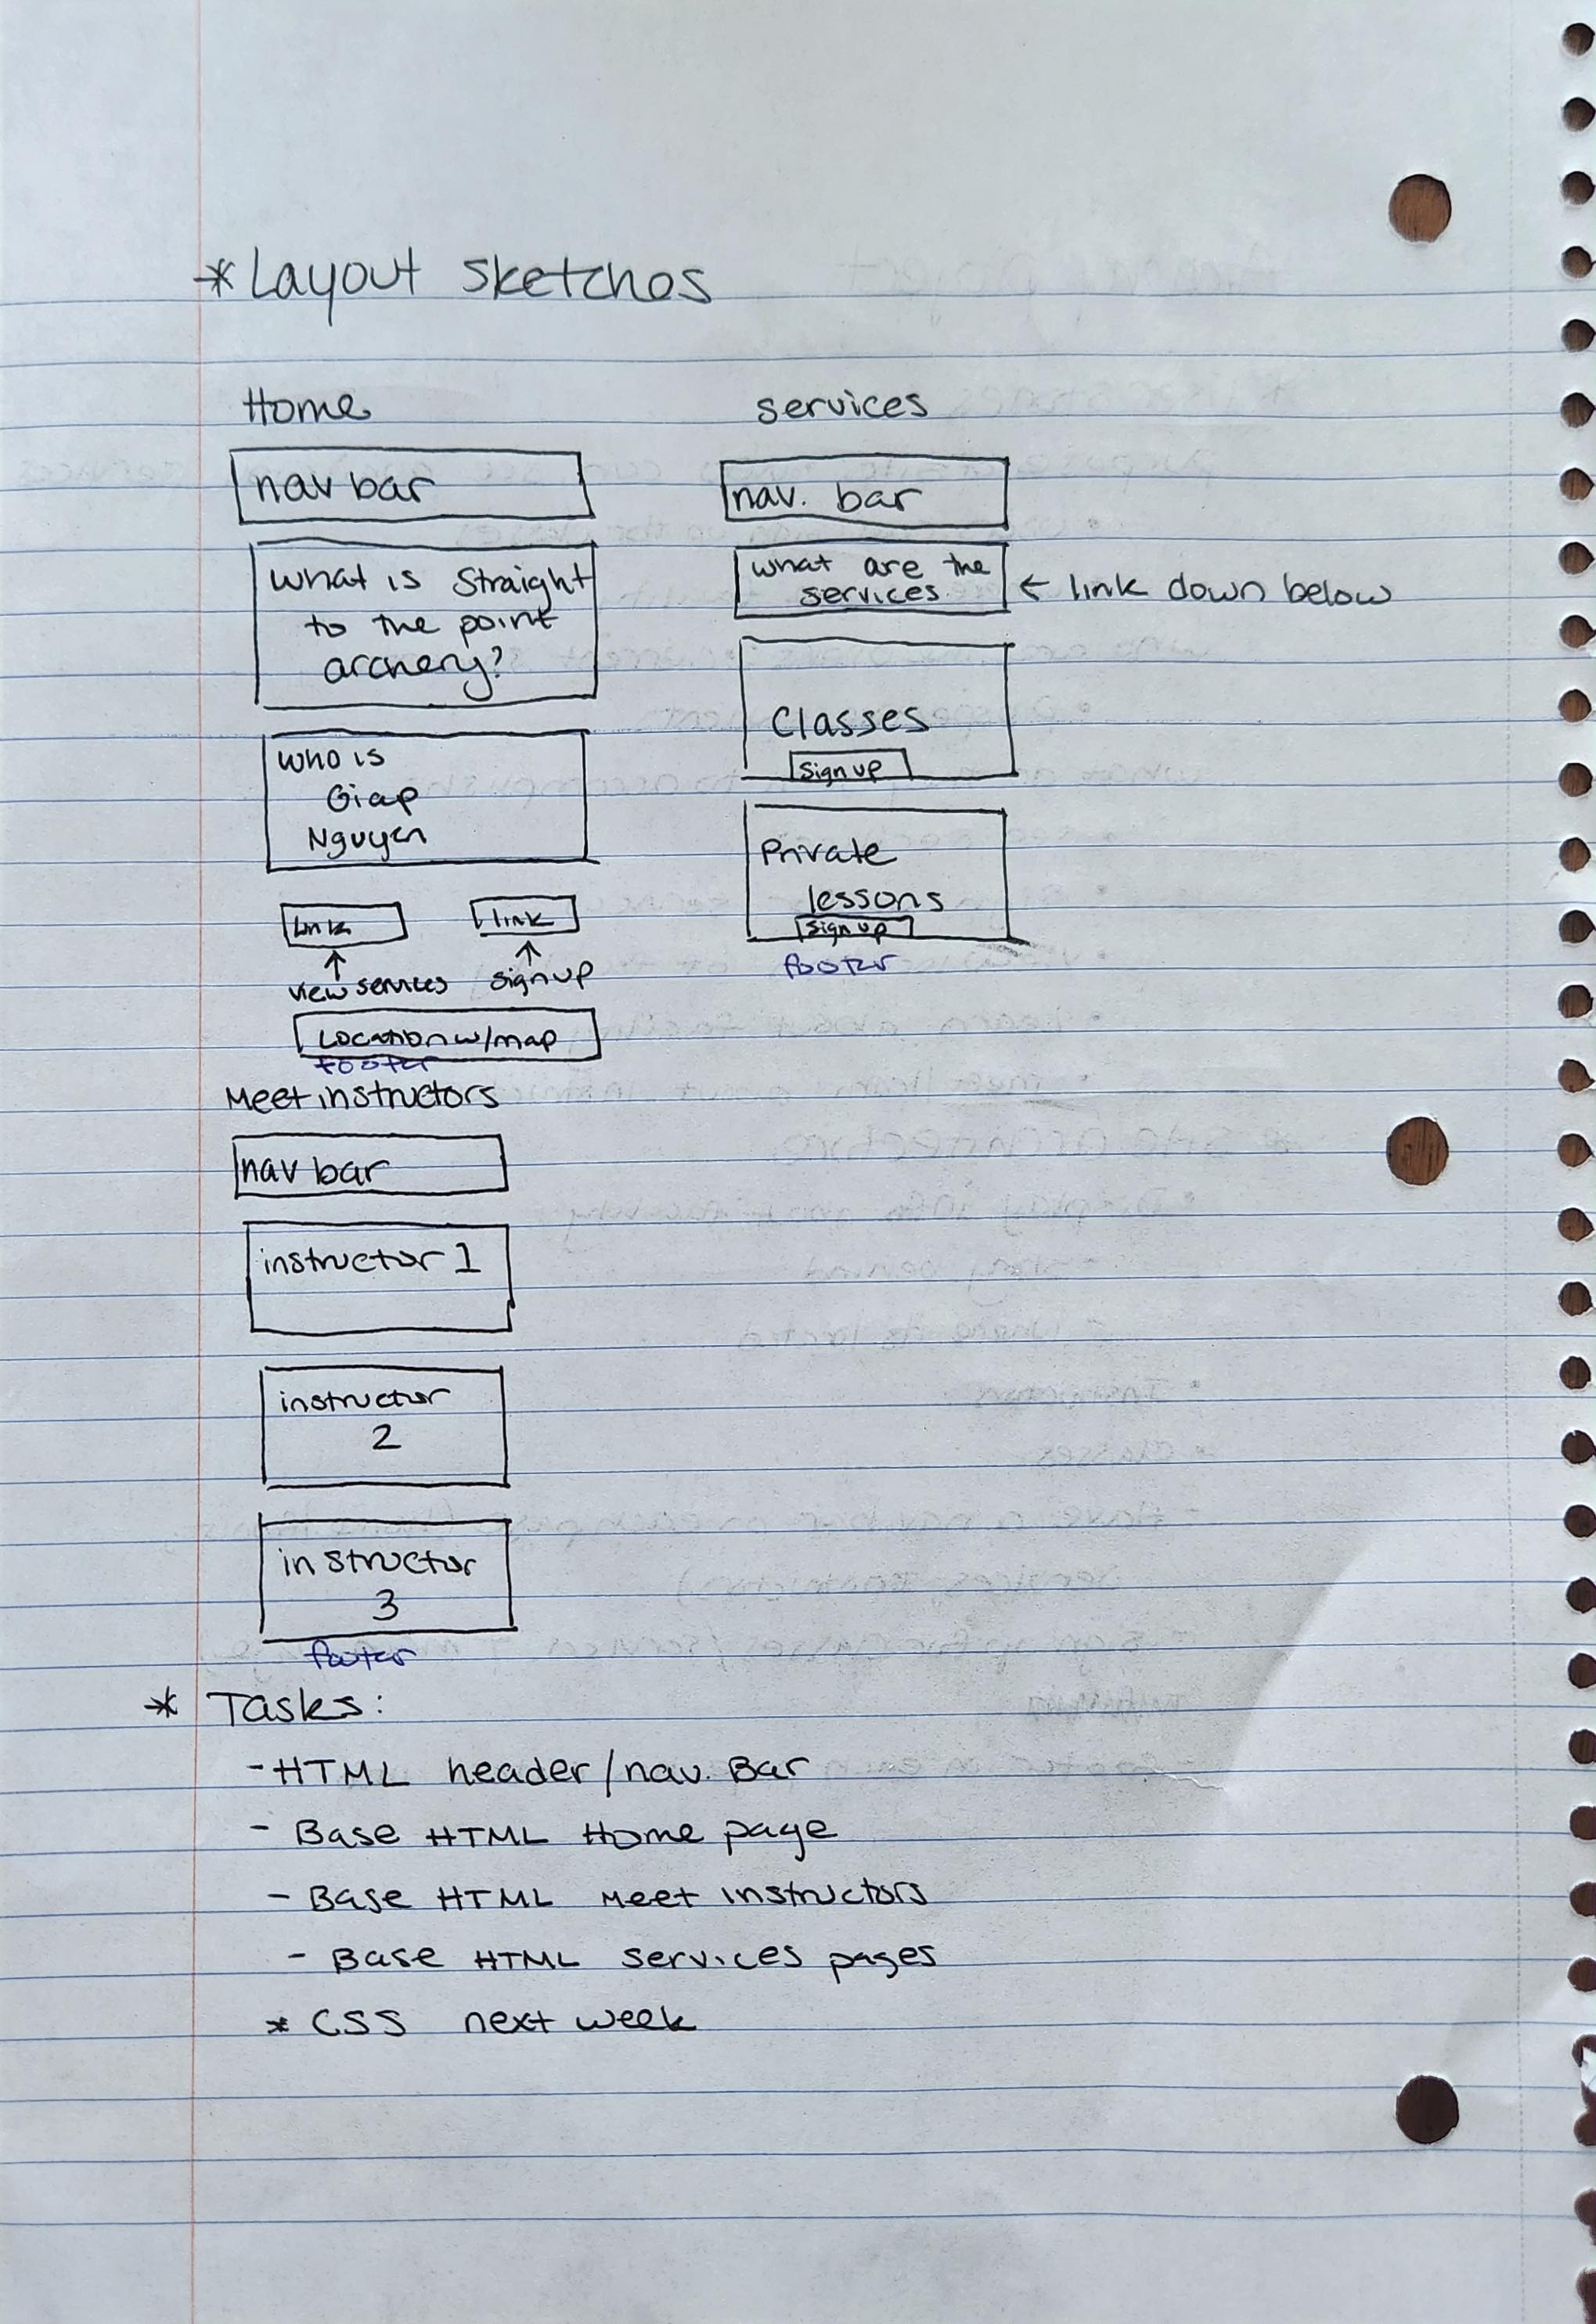 * Layout sketches
Home
nav bar
What is Straight
to the point
archery?
Who is
Giap
Nguyen
link
link
view services
sign up
Location w/map
footer
services
nav. bar
what are the
services
← link down below
Classes
sign up
Private
lessons
sign up
footer
Meet instructors
nav bar
instructor 1
instructor
2
instructor
3
footer
* Tasks:
- HTML header/nav. Bar
- Base HTML Home page
- Base HTML Meet instructors
- Base HTML services pages
* CSS next week